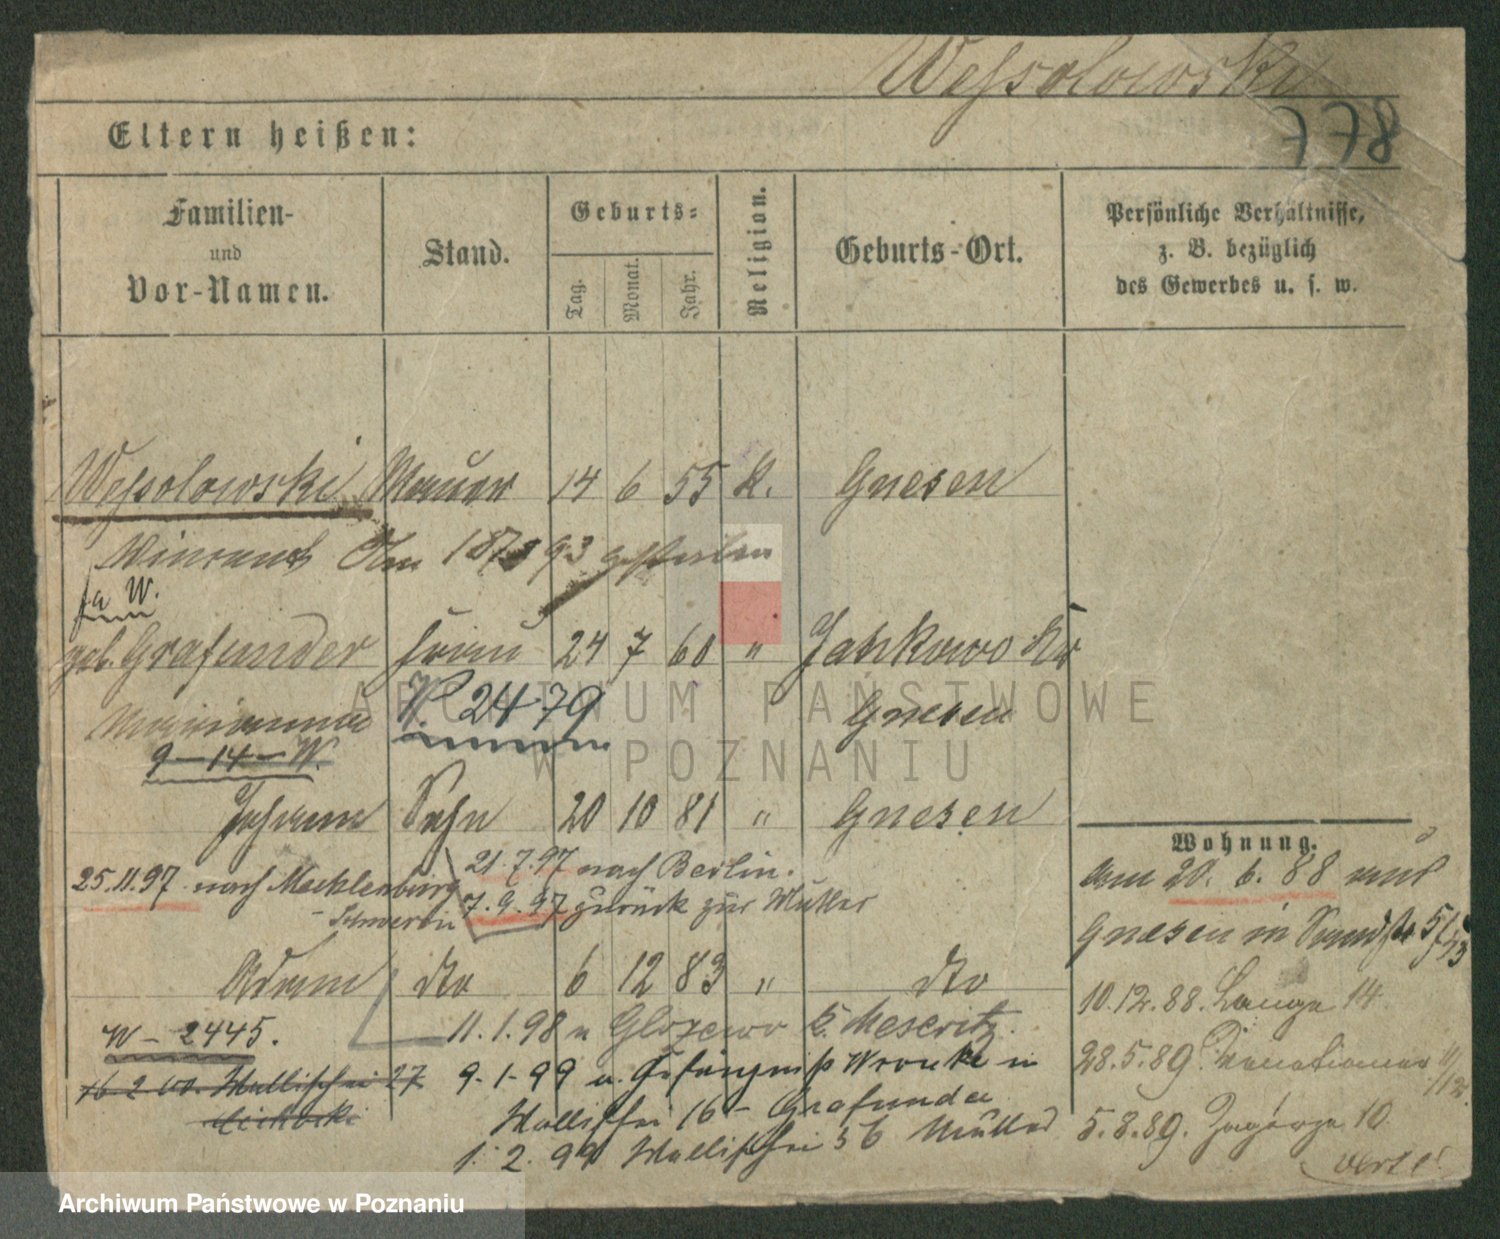 Wessolowski
778
Eltern heißen:
Familien-
und
Vor-Namen.
Stand.
Geburts-
Tag.
Monat.
Jahr.
Religion.
Geburts-Ort.
Persönliche Verhältnisse,
z. B. bezüglich
des Gewerbes u. s. w.
Wessolowski Maurer 14 6 55 K. Gnesen
Vincent 93 gestorben
fr W.
geb. Grafunder Frau 24 7 60 " Jankowo Kr
Marianna W. 2479 Gnesen
9-14-W.
Johann Sohn 20 10 81 " Gnesen
21.7.97 nach Berlin.
25.11.97 nach Mecklenburg
- Schwerin
7.9.97 zurück zur Mutter
Adam dto 6 12 83 " dto
W - 2445.
11.1.98 n Glozewo b. Meseritz.
16 2 00. Wallischei 27
9.1.99 a. Gefängniß Wronke n
Wallischei 16 - Grafunder
1.2.99 Wallischei 56 Müller
Wohnung.
am 20. 6. 88 aus
Gnesen in
10.12.88. Lange 14
28.5.89. Venetianer
5.8.89. Zagórze 10.
verte!
ARCHIWUM PAŃSTWOWE
W POZNANIU
Archiwum Państwowe w Poznaniu